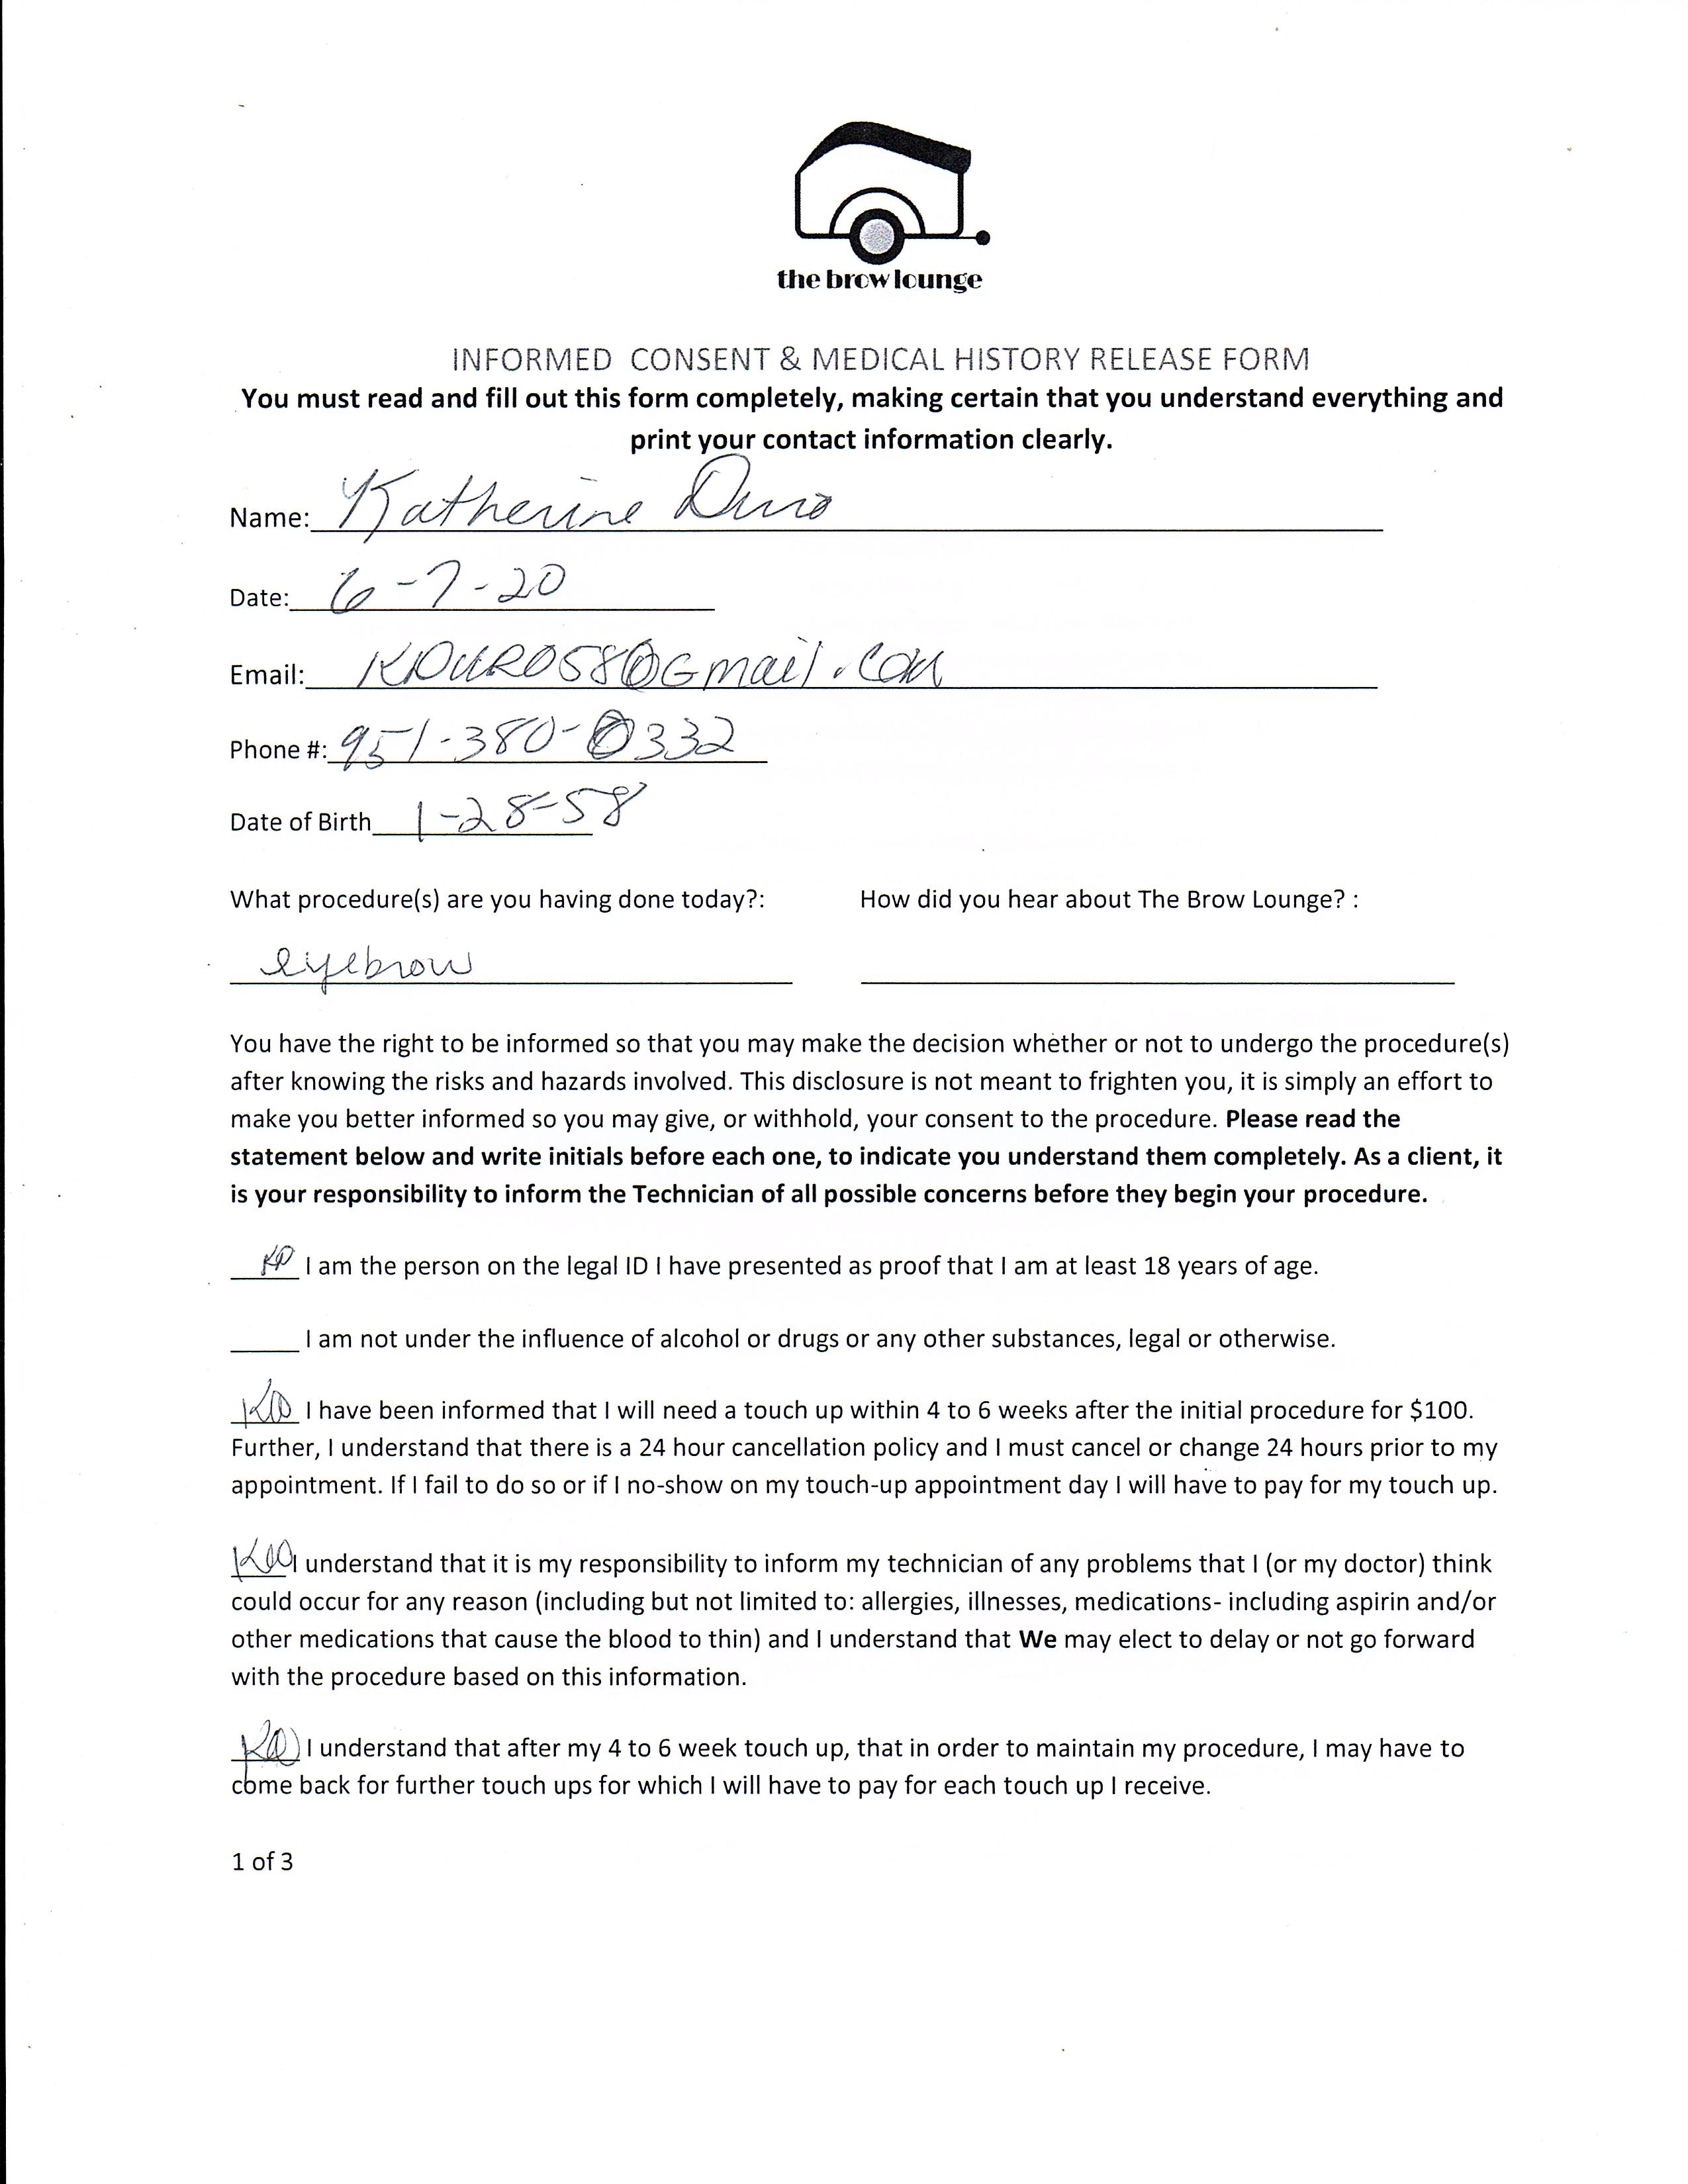 the brow lounge
INFORMED CONSENT & MEDICAL HISTORY RELEASE FORM
You must read and fill out this form completely, making certain that you understand everything and
print your contact information clearly.
Name: Katherine Duro
Date: 6-7-20
Email: KDURO58@Gmail.com
Phone #: 951-380-0332
Date of Birth 1-28-58
What procedure(s) are you having done today?: How did you hear about The Brow Lounge? :
eyebrow
You have the right to be informed so that you may make the decision whether or not to undergo the procedure(s)
after knowing the risks and hazards involved. This disclosure is not meant to frighten you, it is simply an effort to
make you better informed so you may give, or withhold, your consent to the procedure. Please read the
statement below and write initials before each one, to indicate you understand them completely. As a client, it
is your responsibility to inform the Technician of all possible concerns before they begin your procedure.
KD I am the person on the legal ID I have presented as proof that I am at least 18 years of age.
I am not under the influence of alcohol or drugs or any other substances, legal or otherwise.
KD I have been informed that I will need a touch up within 4 to 6 weeks after the initial procedure for $100.
Further, I understand that there is a 24 hour cancellation policy and I must cancel or change 24 hours prior to my
appointment. If I fail to do so or if I no-show on my touch-up appointment day I will have to pay for my touch up.
KD I understand that it is my responsibility to inform my technician of any problems that I (or my doctor) think
could occur for any reason (including but not limited to: allergies, illnesses, medications- including aspirin and/or
other medications that cause the blood to thin) and I understand that We may elect to delay or not go forward
with the procedure based on this information.
KD I understand that after my 4 to 6 week touch up, that in order to maintain my procedure, I may have to
come back for further touch ups for which I will have to pay for each touch up I receive.
1 of 3